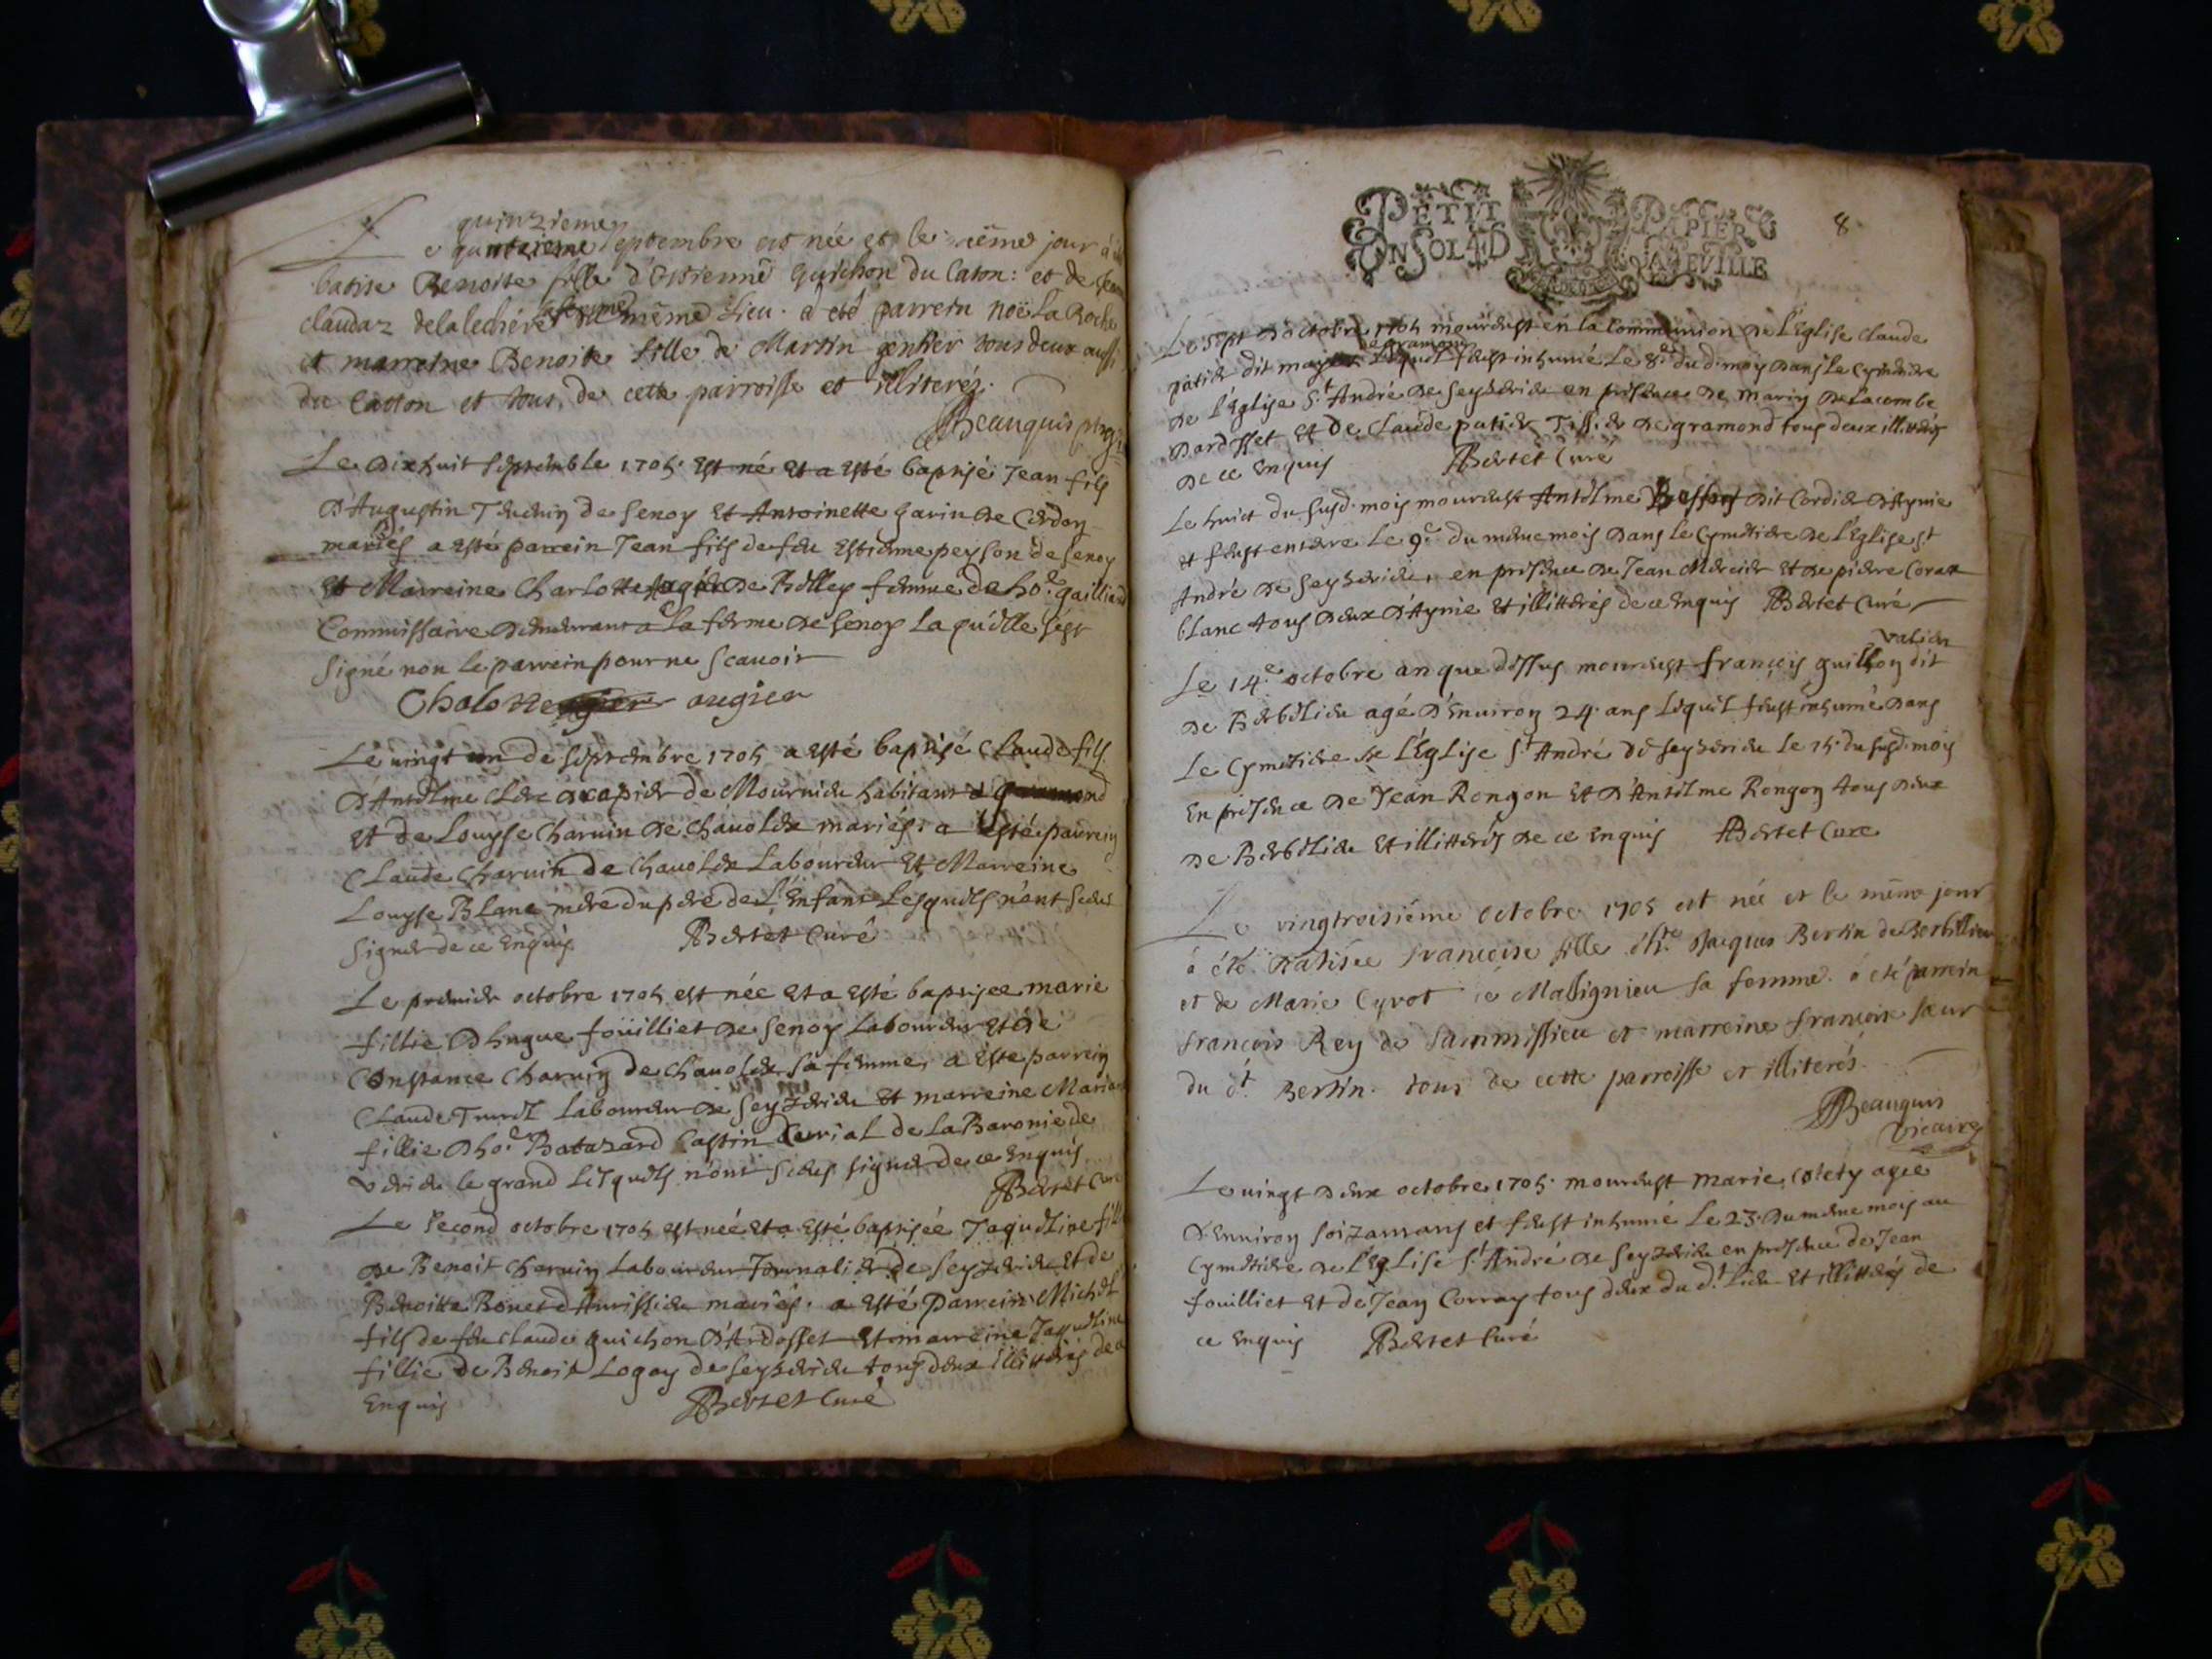 quinzieme
Le septembre est née et le même jour a été
batisée Benoite fille d'Estienne Guichon du Caton: et de
claudaz delalechére sa femme du même Lieu. a été parrein Noë La Roche
et marreine Benoite fille de Martin gentier tous deux aussi
du Catton et tous de cette parroisse et illiteréz.
Beauquis
Le dixhuit septembre 1705 est né et a esté baptisé Jean fils
d'Augustin de Senoy et Antoinette Garin de Cerdon
mariés a esté parrein Jean fils de feu Estienne peyson de Senoy
et Marreine Charlotte de Belley femme de ho.e gailliard
Commissaire demeurant a la ferme de Senoy laquelle s'est
signé non le parrein pour ne scavoir
Chalotte augier
Le vingt un de septembre 1705 a esté baptisé Claude fils
d'Antelme Clerc drapier de Mournieu habitant a gramond
et de Louyse Charuin de Chauoley mariés. a esté parrein
Claude Charuin de Chauoley Laboureur et Marreine
Louyse Blanc mere du pere de l'Enfant Lesquels n'ont sceu
signer de ce Enquis Bertet Curé
Le premier octobre 1705 est née et a esté baptisee marie
fillie d'hugue foüilliet de Senoy Laboureur et de
Constance Charuin de Chauoley sa femme, a este parrein
Claude Laboureur de Seyzerieu et marreine
fillie d'ho.e Batazard Castin Curial de la Baronie de
verieu le grand Lesquels n'ont sceus signer de ce Enquis
Bertet Curé
Le second octobre 1705 est née et a esté baptisée Jaqueline fillie
de Benoit Charuin Laboureur Journalier de Seyzerieu et de
Benoitte Bonet d'Aurissieu mariés. a esté parrein Michel
fils de feu Claude Guichon d'Ardosset et marreine Jaqueline
fillie de Benoit Logoy de Seyzerieu tous deux illitterés de ce
Enquis Bertet Curé
PETIT PAPIER
UN SOL 4 D LA FEUILLE
8
Le sept d'octobre 1705 mourust en la Communion de l'Église Claude
de gramond
patier dit lequel feust inhumé le 8.e du d. mois dans le Cymetiere
de l'Église S.t André de Seyzerieu en presence de Marin Delacombe
Dardosset et de Claude patier Tissier de gramond tous deux illitterés
de ce Enquis Bertet Curé
Le huict du susd. mois mourust Antelme dit Cordier d'Aynie
et feust enterre le 9.e du mesme mois dans le Cymetiere de l'Église S.t
André de Seyzerieu, en presence de Jean Mercier et de pierre Corax
blanc tous deux d'Aynie et illitterés de ce Enquis Bertet Curé
valier
Le 14.e octobre an que dessus mourust françois guillon dit
de Berbelieu agé d'Enuiron 24 ans lequel feust inhumé dans
Le Cymetiere de l'Église S.t André de Seyzerieu le 15 du susd. mois
En presence de Jean Rongon et d'Antelme Rongon tous deux
de Berbelieu et illitterés de ce Enquis Bertet Curé
Le vingtroisiéme octobre 1705 est née et le même jour
a été Batisée françoise fille d'h.te Jacques Bertin de Berbillieu
et de Marie Cyrot de Massignieu sa femme. a été parrein
françois Rey de Sammissieu et marreine françoise sœur
du d.t Bertin. tous de cette parroisse et illiterés.
Beauquis
Vicaire
Le vingt deux octobre 1705 mourust marie Colety agée
d'Enuiron soizant ans et feust inhumé le 23. du mesme mois au
Cymetiere de l'Eglise S.t André de Seyzerieu en presence de Jean
fouilliet et de Jean Corray tous deux du d.t Lieu et illitterés de
ce Enquis Bertet Curé